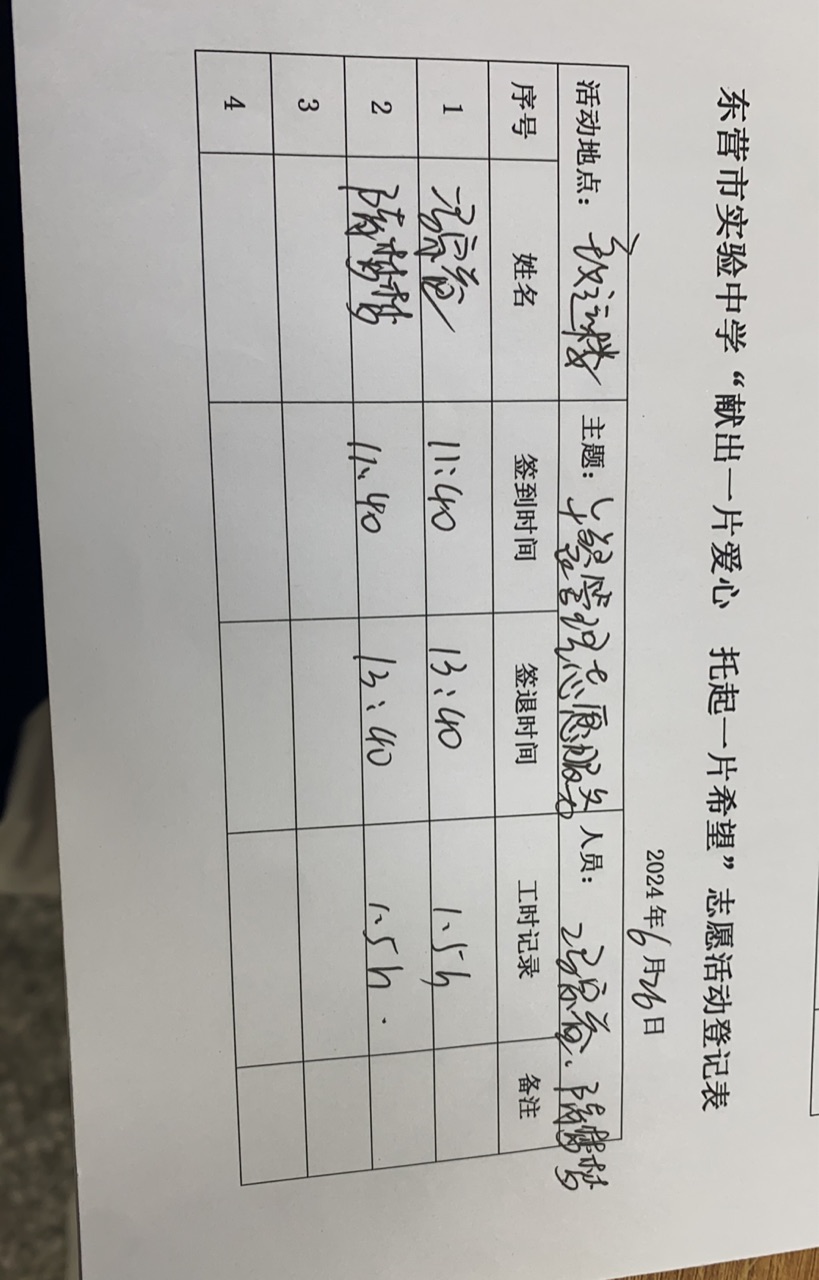 东营市实验中学“献出一片爱心 托起一片希望”志愿活动登记表
2024年6月26日
活动地点： 主题：午餐管理志愿服务 人员：
序号 姓名 签到时间 签退时间 工时记录 备注
1 11:40 13:40 1.5h
2 11:40 13:40 1.5h.
3
4